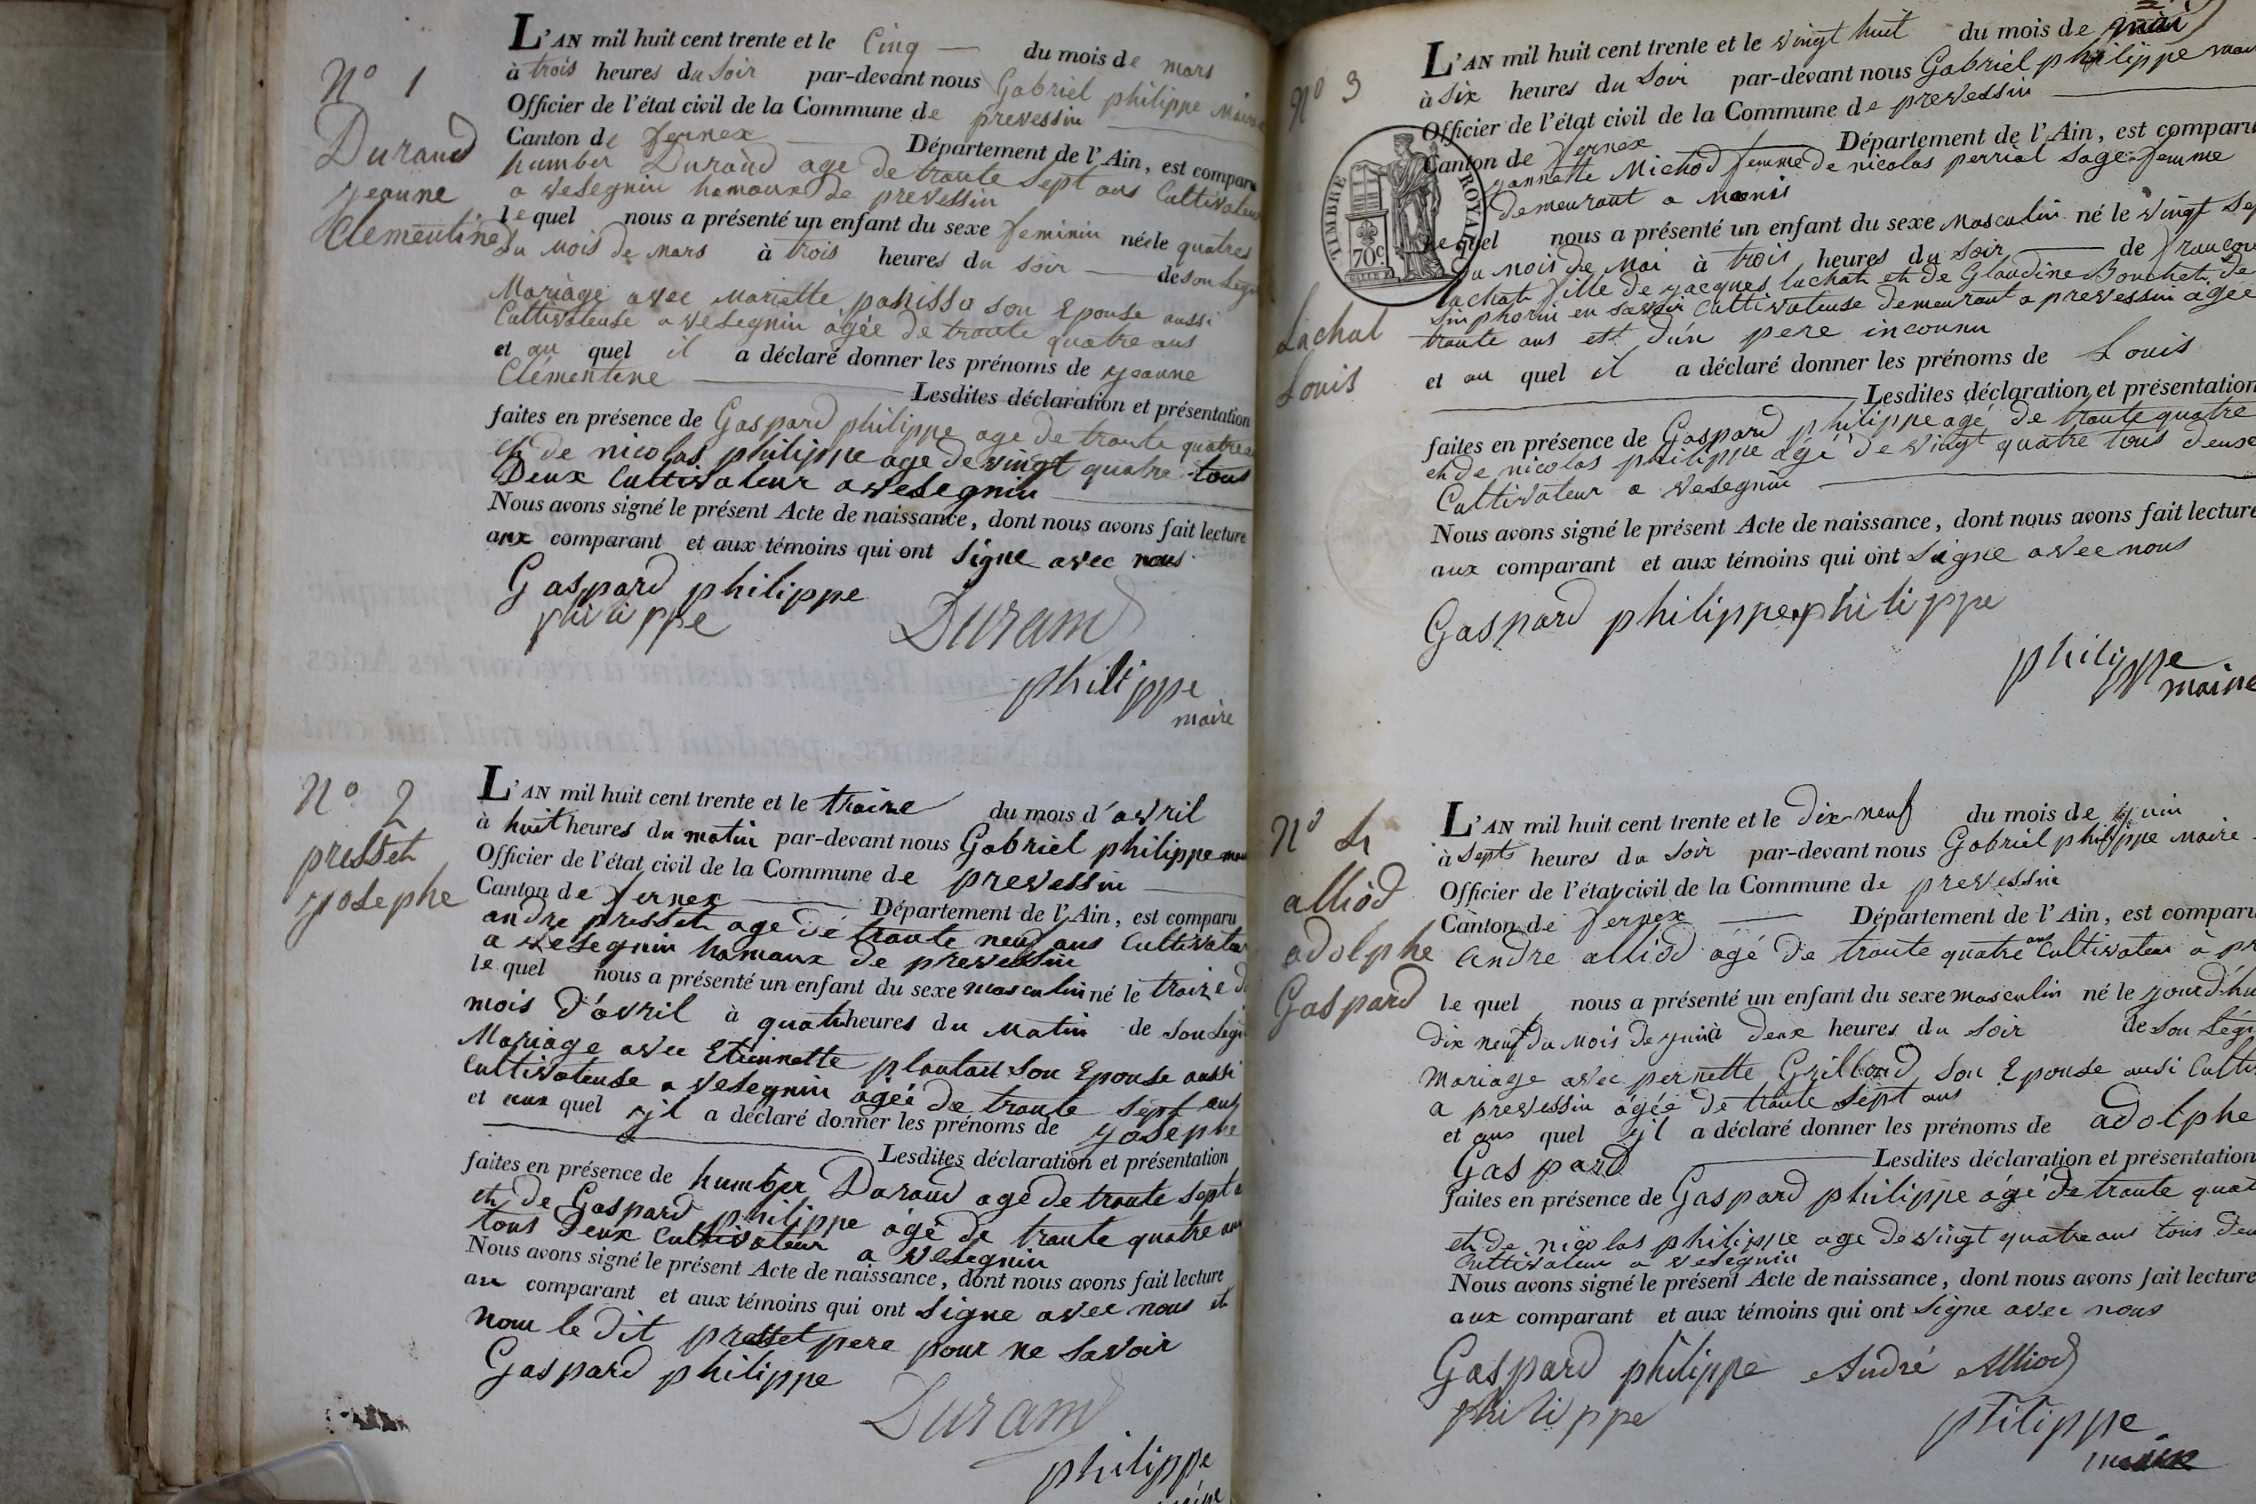 N° 1
Durand
yeanne
Clementine
L'AN mil huit cent trente et le Cinq du mois de mars
à trois heures du Soir par-devant nous Gabriel philippe Maire
Officier de l'état civil de la Commune de prevessin
Canton de fernex Département de l'Ain, est comparu
humber Durand age de trante Sept ans Cultivateur
a veSegnin hamaux de prevessin
le quel nous a présenté un enfant du sexe feminin née le quatres
du Mois de Mars à trois heures du soir de son Legi
Mariage avec Mariette son Epouse aussi
Cultivateuse a veSegnin âgée de trante quatre ans
et au quel il a déclaré donner les prénoms de yeanne
Clémentine Lesdites déclaration et présentation
faites en présence de Gaspard philippe age de trante quatre
et de nicolas philippe age de vingt quatre tous
Deux Cultivateur a veSegnin
Nous avons signé le présent Acte de naissance, dont nous avons fait lecture
aux comparant et aux témoins qui ont Signe avec nous
Gaspard philippe
philippe Durand
philippe
maire
N° 2
presset
yosephe
L'AN mil huit cent trente et le traize du mois d'avril
à huit heures du matin par-devant nous Gabriel philippe
Officier de l'état civil de la Commune de prevessin
Canton de fernex Département de l'Ain, est comparu
andre presset age de trante neuf ans Cultivateur
a veSegnin hamaux de prevessin
le quel nous a présenté un enfant du sexe masculin né le traize d
mois d'avril à quatre heures du Matin de son Legi
Mariage avec Etiennette plantau son Epouse aussi
Cultivateuse a veSegnin âgée de trante Sept ans
et aux quel yl a déclaré donner les prénoms de yosephe
Lesdites déclaration et présentation
faites en présence de humber Durand age de trante Sept
et de Gaspard philippe âgé de trante quatre ans
tous Deux Cultivateur a veSegnin
Nous avons signé le présent Acte de naissance, dont nous avons fait lecture
au comparant et aux témoins qui ont Signe avec nous et
nom le dit presset pere pour ne Savoir
Gaspard philippe
Durand
philippe
N° 3
TIMBRE ROYAL
70c
Lachat
Louis
L'AN mil huit cent trente et le vingt huit du mois de mai
à Six heures du Soir par-devant nous Gabriel philippe mai
Officier de l'état civil de la Commune de prevessin
Canton de fernex Département de l'Ain, est comparu
yannette Michod femme de nicolas perrial Sage femme
demeurant a Moenis
le quel nous a présenté un enfant du sexe Masculin né le vingt Sep
du Mois de Mai à trois heures du Soir de françoi
Lachat fille de yacques Lachat et de Glaudine Bouchet de
Sinphorin en Savoir Cultivateuse demeurant a prevessin âgée
trante ans et d'un pere inconnu
et au quel il a déclaré donner les prénoms de Louis
Lesdites déclaration et présentation
faites en présence de Gaspard philippe agé de trante quatre
et de nicolas philippe âgé de vingt quatre tous deux
Cultivateur a veSegnin
Nous avons signé le présent Acte de naissance, dont nous avons fait lecture
aux comparant et aux témoins qui ont Signe avec nous
Gaspard philippe philippe
philippe
maire
N° 4
alliod
adolphe
Gaspard
L'AN mil huit cent trente et le Dix-neuf du mois de yuin
à Septs heures du Soir par-devant nous Gabriel philippe Maire
Officier de l'état civil de la Commune de prevessin
Canton de fernex Département de l'Ain, est comparu
andre alliod agé de trante quatre ans Cultivateur à pr
le quel nous a présenté un enfant du sexe masculin né le yourd'hu
Dix neuf du Mois de yuin à Deux heures du Soir de Son Légi
Mariage avec pernette Grilland Son Epouse ausi Culti
a prevessin âgée de trante Sept ans
et aux quel yl a déclaré donner les prénoms de adolphe
Gaspard Lesdites déclaration et présentation
faites en présence de Gaspard philippe âgé de trante quat
et de nicolas philippe age de vingt quatre ans tous deu
Cultivateur a veSegnin
Nous avons signé le présent Acte de naissance, dont nous avons fait lecture
aux comparant et aux témoins qui ont Signe avec nous
Gaspard philippe André Alliod
philippe philippe
maire